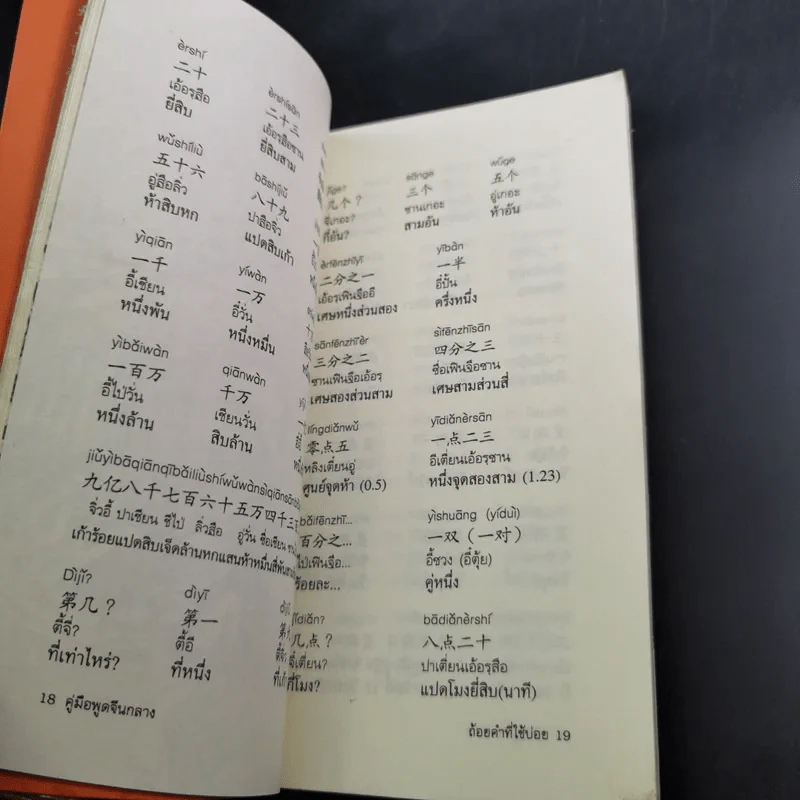 èrshí
二十
เอ้อรฺสือ
ยี่สิบ
èrshísān
二十三
เอ้อรฺสือซาน
ยี่สิบสาม
wǔshíliù
五十六
อู่สือลิ่ว
ห้าสิบหก
bāshíjiǔ
八十九
ปาสือจิ่ว
แปดสิบเก้า
yìqiān
一千
อี้เชียน
หนึ่งพัน
yíwàn
一万
อี๋วั่น
หนึ่งหมื่น
yìbǎiwàn
一百万
อี้ไป่วั่น
หนึ่งล้าน
qiānwàn
千万
เชียนวั่น
สิบล้าน
jiǔyìbāqiānqībǎiliùshíwǔwànsìqiānsān
九亿八千七百六十五万四千三
จิ่วอี้ ปาเชียน ชีไป่ ลิ่วสือ อู่วั่น ซื่อเชียน
เก้าร้อยแปดสิบเจ็ดล้านหกแสนห้าหมื่นสี่พัน
Dìjǐ?
第几？
ตี้จี่?
ที่เท่าไหร่?
dìyī
第一
ตี้อี
ที่หนึ่ง
18 คู่มือพูดจีนกลาง
jǐge?
几个？
จี่เกอะ?
กี่อัน?
sānge
三个
ซานเกอะ
สามอัน
wǔge
五个
อู่เกอะ
ห้าอัน
èrfēnzhīyī
二分之一
เอ้อรฺเฟินจืออี
เศษหนึ่งส่วนสอง
yíbàn
一半
อี๋ปั้น
ครึ่งหนึ่ง
sānfēnzhīèr
三分之二
ซานเฟินจือเอ้อรฺ
เศษสองส่วนสาม
sìfēnzhīsān
四分之三
ซื่อเฟินจือซาน
เศษสามส่วนสี่
língdiǎnwǔ
零点五
หลิงเตี่ยนอู่
ศูนย์จุดห้า (0.5)
yīdiǎnèrsān
一点二三
อีเตี่ยนเอ้อรฺซาน
หนึ่งจุดสองสาม (1.23)
bǎifēnzhī...
百分之...
ไป่เฟินจือ...
ร้อยละ...
yìshuāng (yíduì)
一双（一对）
อี้ซวง (อี๋ตุ้ย)
คู่หนึ่ง
jǐdiǎn?
几点？
จี่เตี่ยน?
กี่โมง?
bādiǎnèrshí
八点二十
ปาเตี่ยนเอ้อรฺสือ
แปดโมงยี่สิบ(นาที)
ถ้อยคำที่ใช้บ่อย 19